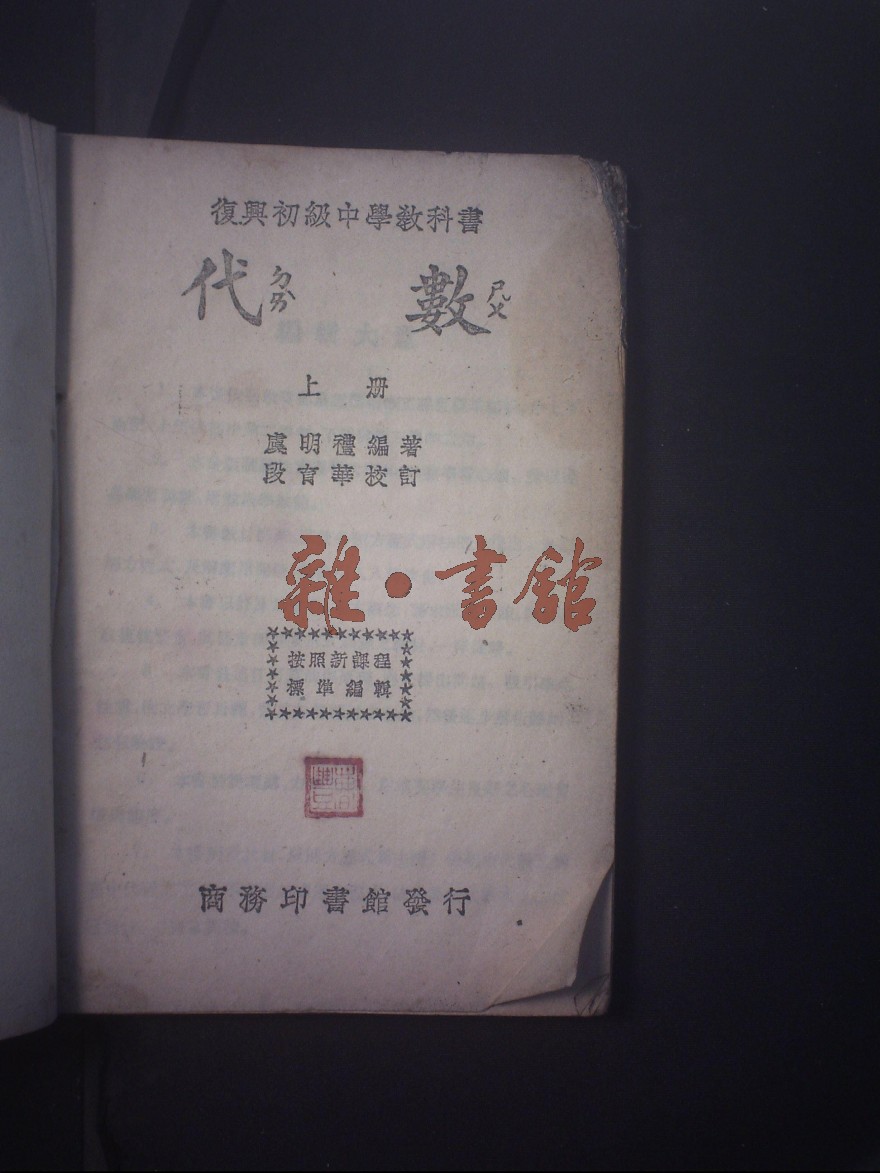 復興初級中學教科書
代ㄉㄞˋ 數ㄕㄨˋ
上 册
虞明禮編著
段育華校訂
雜·書館
按照新課程
標準編輯
商務印書館發行